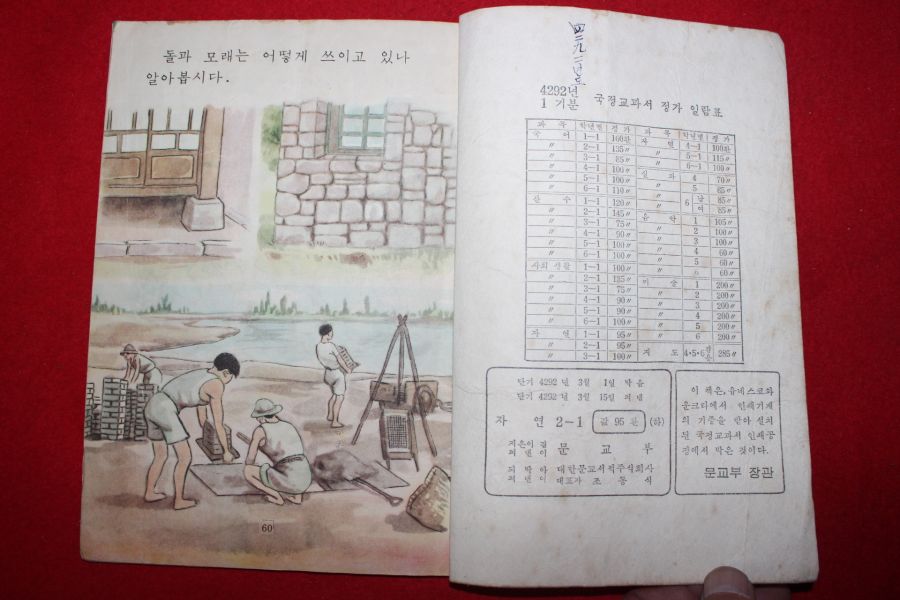 돌과 모래는 어떻게 쓰이고 있나
알아봅시다.
60
4292년
1 기분 국정교과서 정가 일람표
과 목 학년별 정 가 과 목 학년별 정 가
국 어 1—1 100환 자 연 4—1 100환
〃 2—1 135〃 〃 5—1 115〃
〃 3—1 85〃 〃 6—1 100〃
〃 4—1 100〃 실 과 4 70〃
〃 5—1 100〃 〃 5 85〃
〃 6—1 110〃 〃 6 남 85〃
산 수 1—1 120〃 〃 여 85〃
〃 2—1 145〃 음 악 1 105〃
〃 3—1 75〃 〃 2 100〃
〃 4—1 90〃 〃 3 100〃
〃 5—1 100〃 〃 4 60〃
〃 6—1 100〃 〃 5 60〃
사회 생활 1—1 100〃 〃 6 60〃
〃 2—1 135〃 미 술 1 200〃
〃 3—1 75〃 〃 2 200〃
〃 4—1 90〃 〃 3 200〃
〃 5—1 90〃 〃 4 200〃
〃 6—1 100〃 〃 5 200〃
자 연 1—1 95〃 〃 6 200〃
〃 2—1 95〃
〃 3—1 100〃 지 도 4·5·6 285〃
단기 4292 년 3월 1일 박음
단기 4292 년 3월 15일 펴냄
자 연 2—1 값 95 환 (하)
지은이 겸
펴낸이 문 교 부
펴낸이 대한문교서적주식회사
대표자 조 동 식
이 책은, 유네스코와
운크라에서 인쇄기계
의 기증을 받아 설치
된 국정교과서 인쇄공
장에서 박은 것이다.
문교부 장관